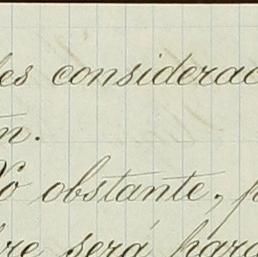 les considerac
n.
No obstante, p
bre será para